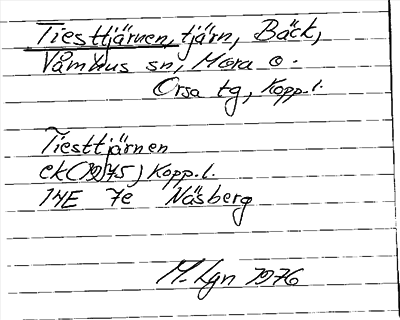 Tiesttjärnen, tjärn, Bäck,
Våmhus sn, Mora o.
Orsa tg, Kopp.l.
Tiesttjärnen
ek(1975) Kopp.l.
14E 7e Näsberg
M. Lgn 1976